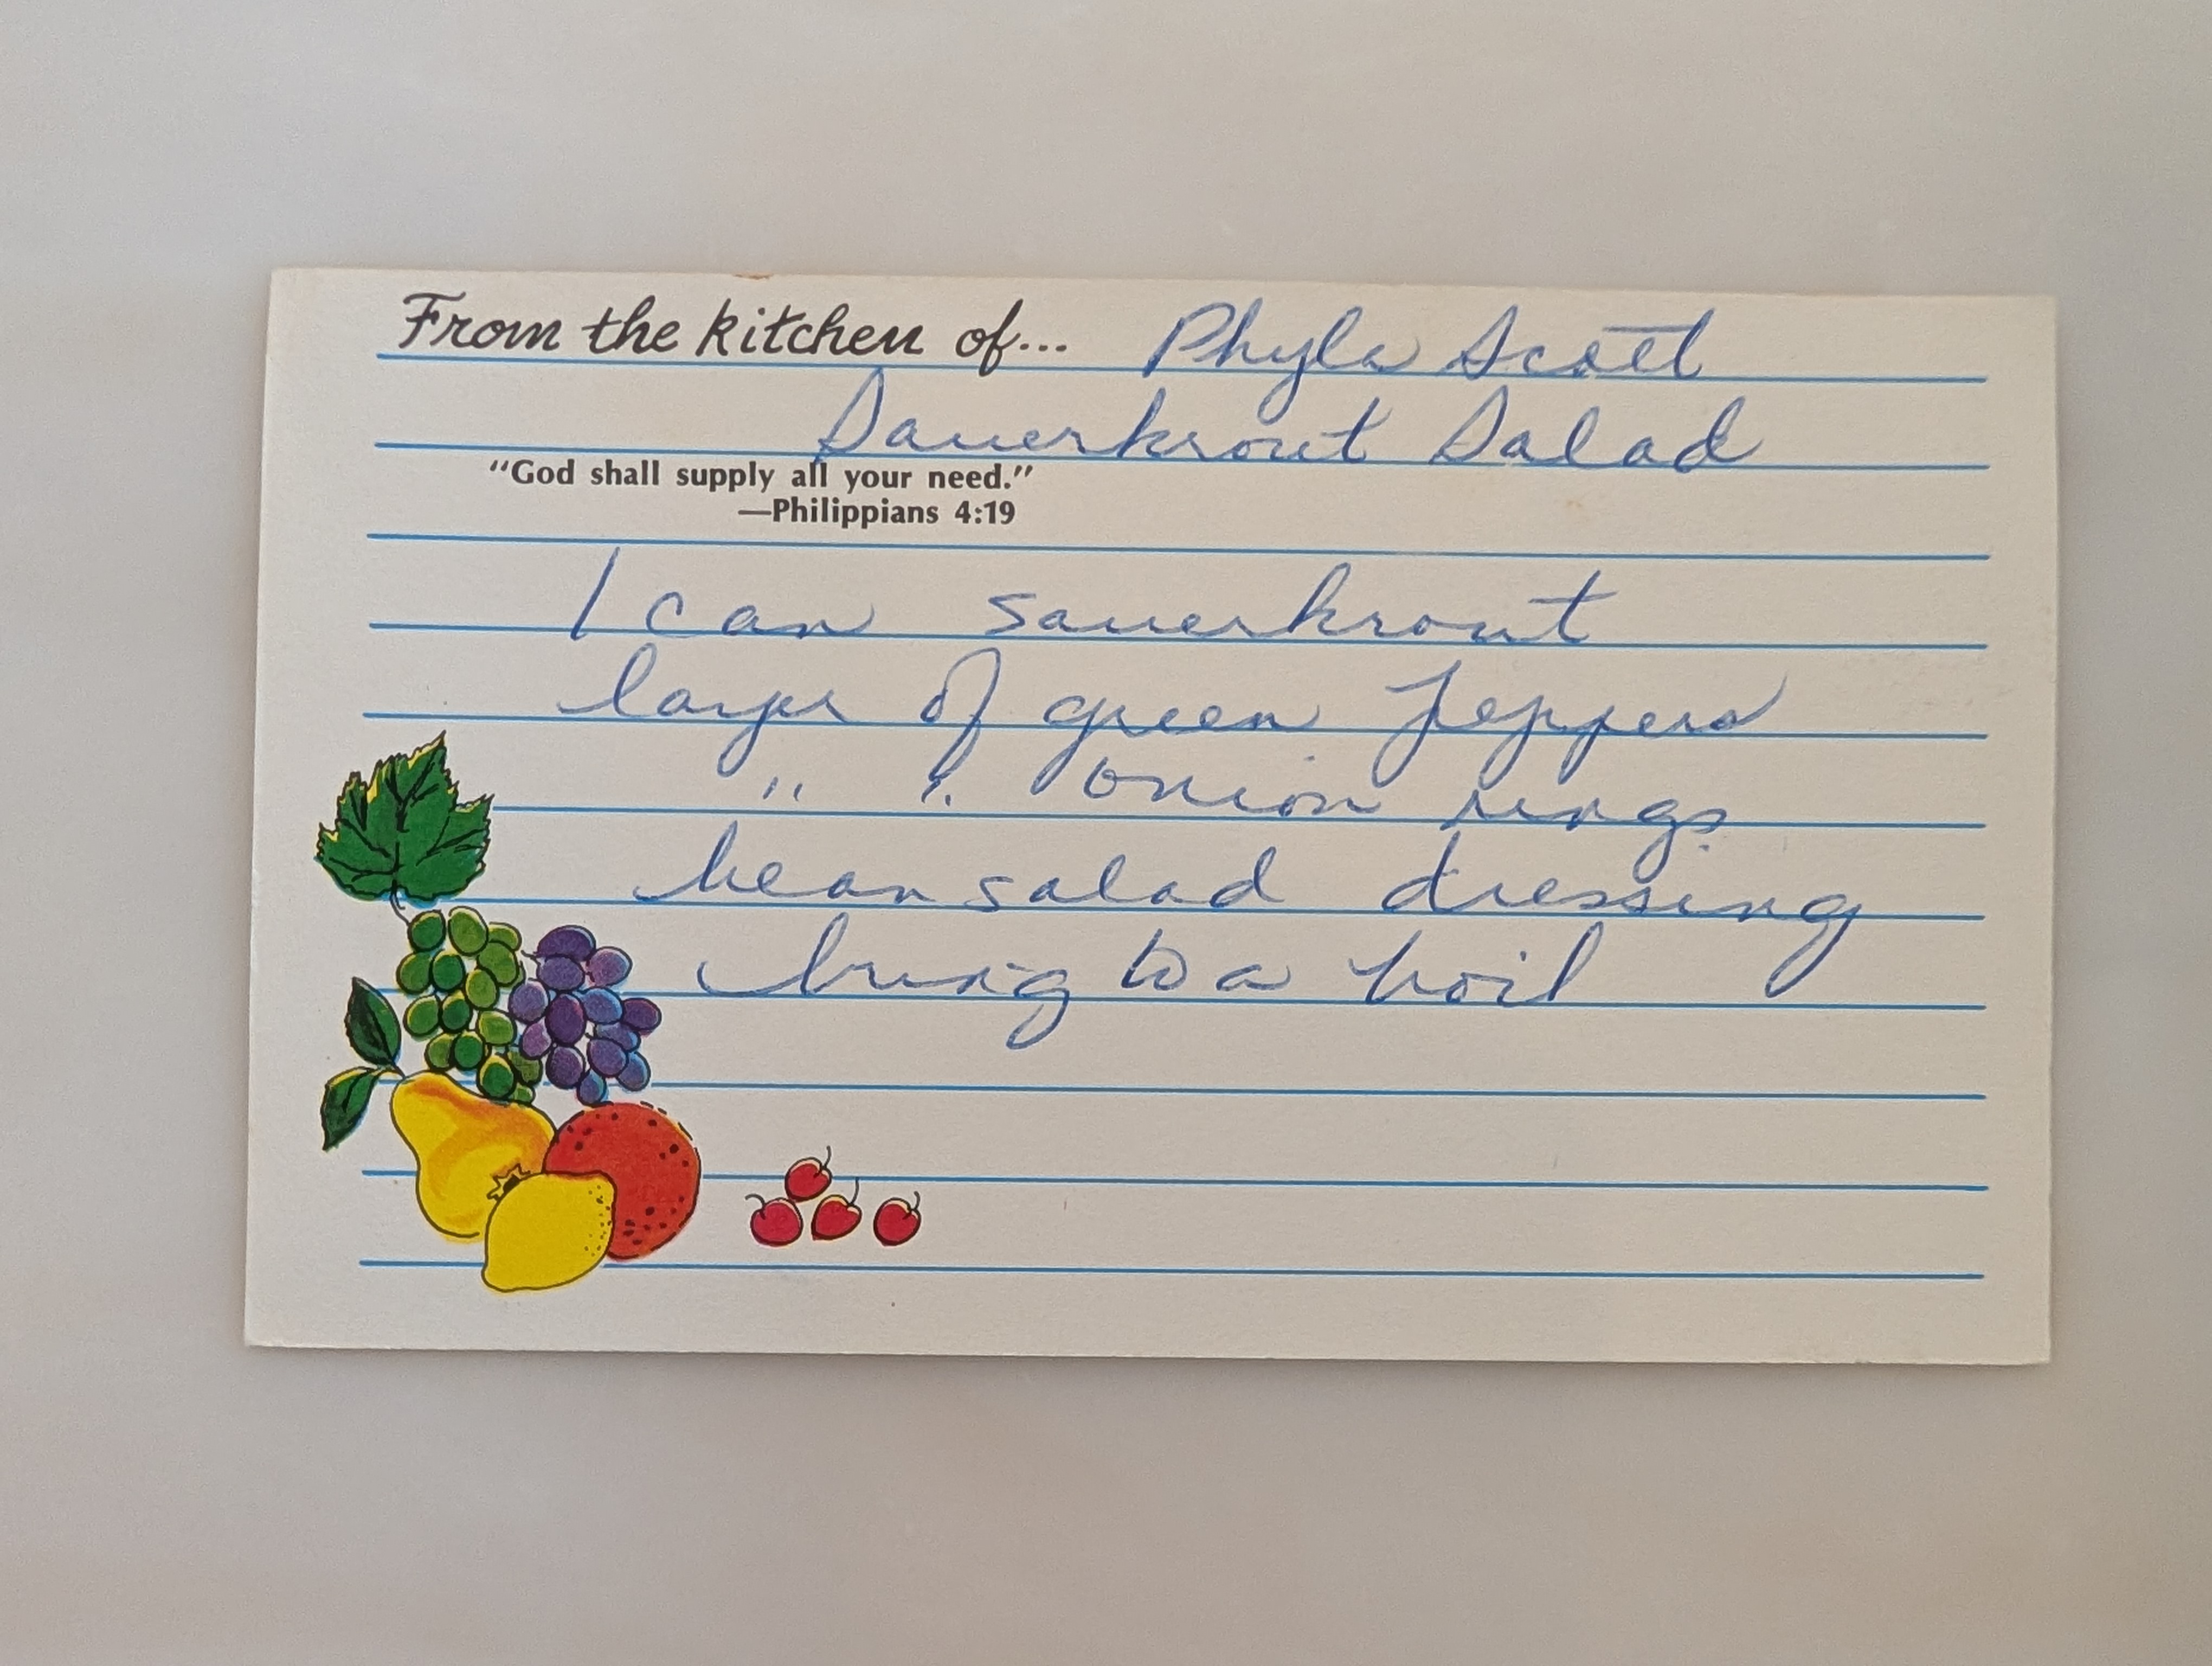 From the kitchen of... Phyla Scott
Sauerkrout Salad
“God shall supply all your need.”
—Philippians 4:19
1 can sauerkrout
layer of green peppers
" " onion rings
bean salad dressing
bring to a boil